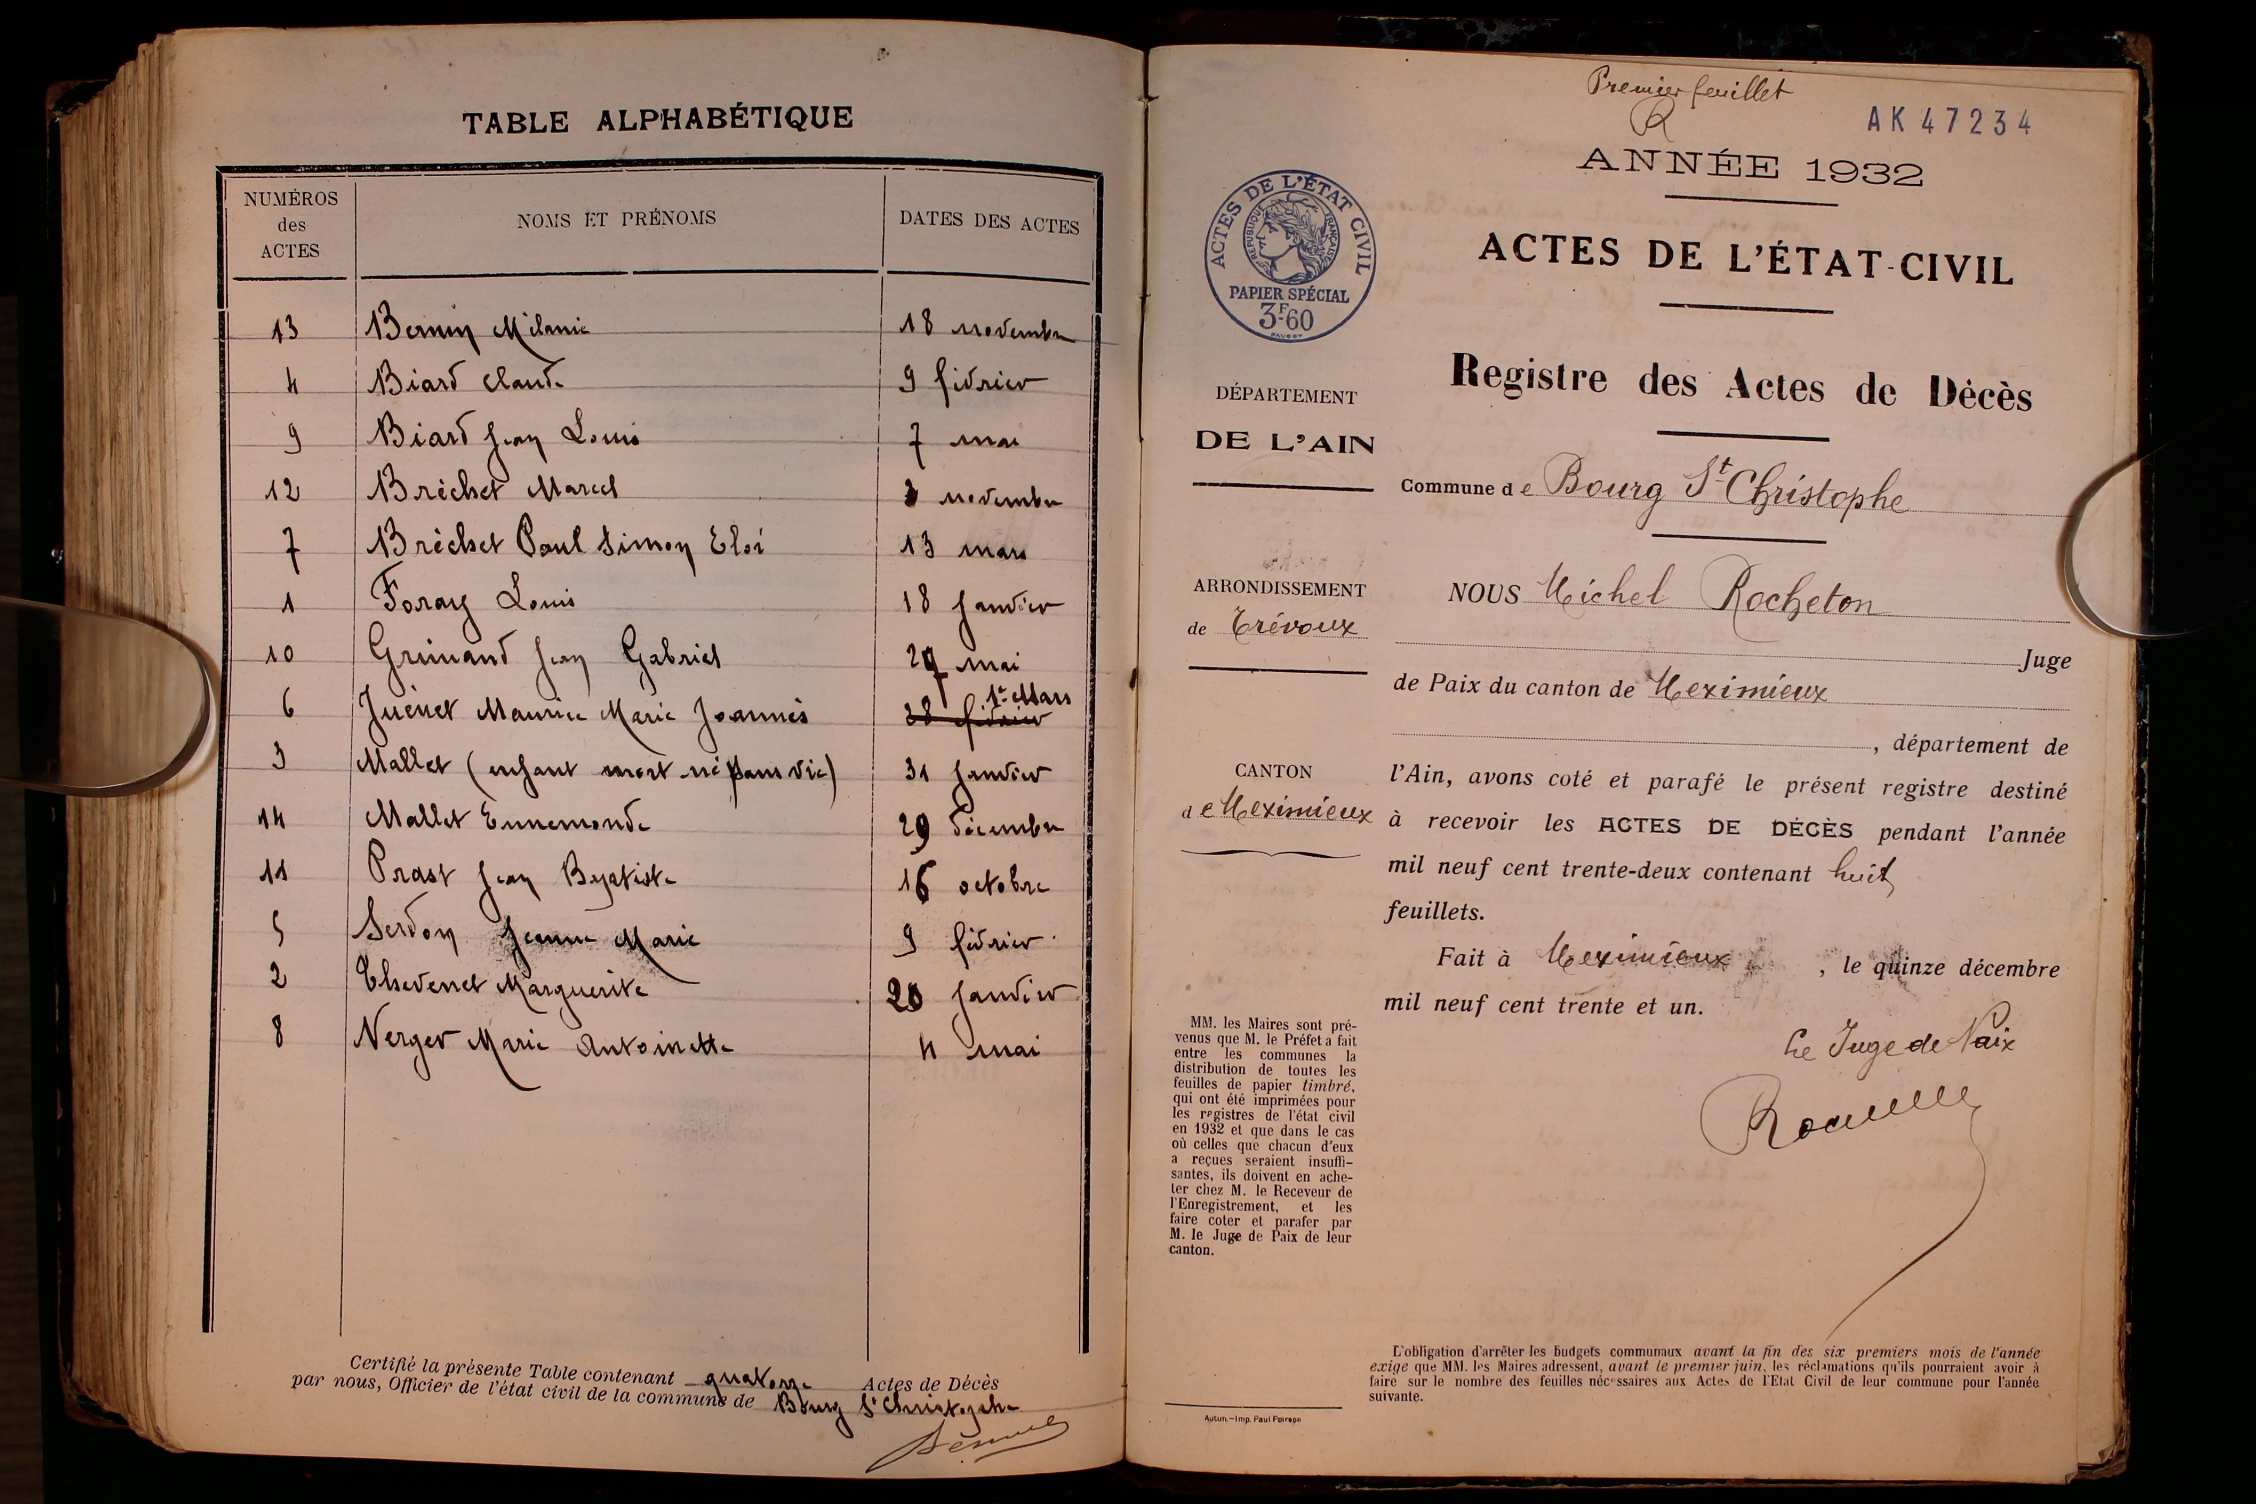 TABLE ALPHABÉTIQUE
NUMÉROS des ACTES NOMS ET PRÉNOMS DATES DES ACTES
13 Bernin Mélanie 18 novembre
4 Biard Claude 9 février
9 Biard Jean Louis 7 mai
12 Bréchet Marcel 3 novembre
7 Bréchet Paul Simon Eloi 13 mars
1 Foray Louis 18 Janvier
10 Grimand Jean Gabriel 29 mai
1er Mars
6 Juénet Maurice Marie Joannès 28 février
3 Mallet (enfant mort né sans vie) 31 Janvier
14 Mallet Ennemonde 29 décembre
11 Prast Jean Baptiste 16 octobre
5 Serdon Jeanne Marie 9 février
2 Thevenet Marguerite 20 Janvier
8 Verger Marie Antoinette 4 mai
Certifié la présente Table contenant quatorze Actes de Décès
par nous, Officier de l'état civil de la commune de Bourg St Christophe
Premier feuillet
R
AK 47234
ANNÉE 1932
ACTES DE L'ÉTAT CIVIL
RÉPUBLIQUE FRANÇAISE
PAPIER SPÉCIAL
3F60
ACTES DE L'ÉTAT-CIVIL
Registre des Actes de Décès
DÉPARTEMENT
DE L'AIN
Commune de Bourg St Christophe
ARRONDISSEMENT
de Trévoux
CANTON
de Meximieux
NOUS Michel Rocheton
Juge
de Paix du canton de Meximieux
, département de
l'Ain, avons coté et parafé le présent registre destiné
à recevoir les ACTES DE DÉCÈS pendant l'année
mil neuf cent trente-deux contenant huit
feuillets.
Fait à Meximieux, le quinze décembre
mil neuf cent trente et un.
Le Juge de Paix
MM. les Maires sont pré-
venus que M. le Préfet a fait
entre les communes la
distribution de toutes les
feuilles de papier timbré,
qui ont été imprimées pour
les registres de l'état civil
en 1932 et que dans le cas
où celles que chacun d'eux
a reçues seraient insuffi-
santes, ils doivent en ache-
ter chez M. le Receveur de
l'Enregistrement, et les
faire coter et parafer par
M. le Juge de Paix de leur
canton.
L'obligation d'arrêter les budgets communaux avant la fin des six premiers mois de l'année
exige que MM. les Maires adressent, avant le premier juin, les réclamations qu'ils pourraient avoir à
faire sur le nombre des feuilles nécessaires aux Actes de l'Etat Civil de leur commune pour l'année
suivante.
Autun.—Imp. Paul